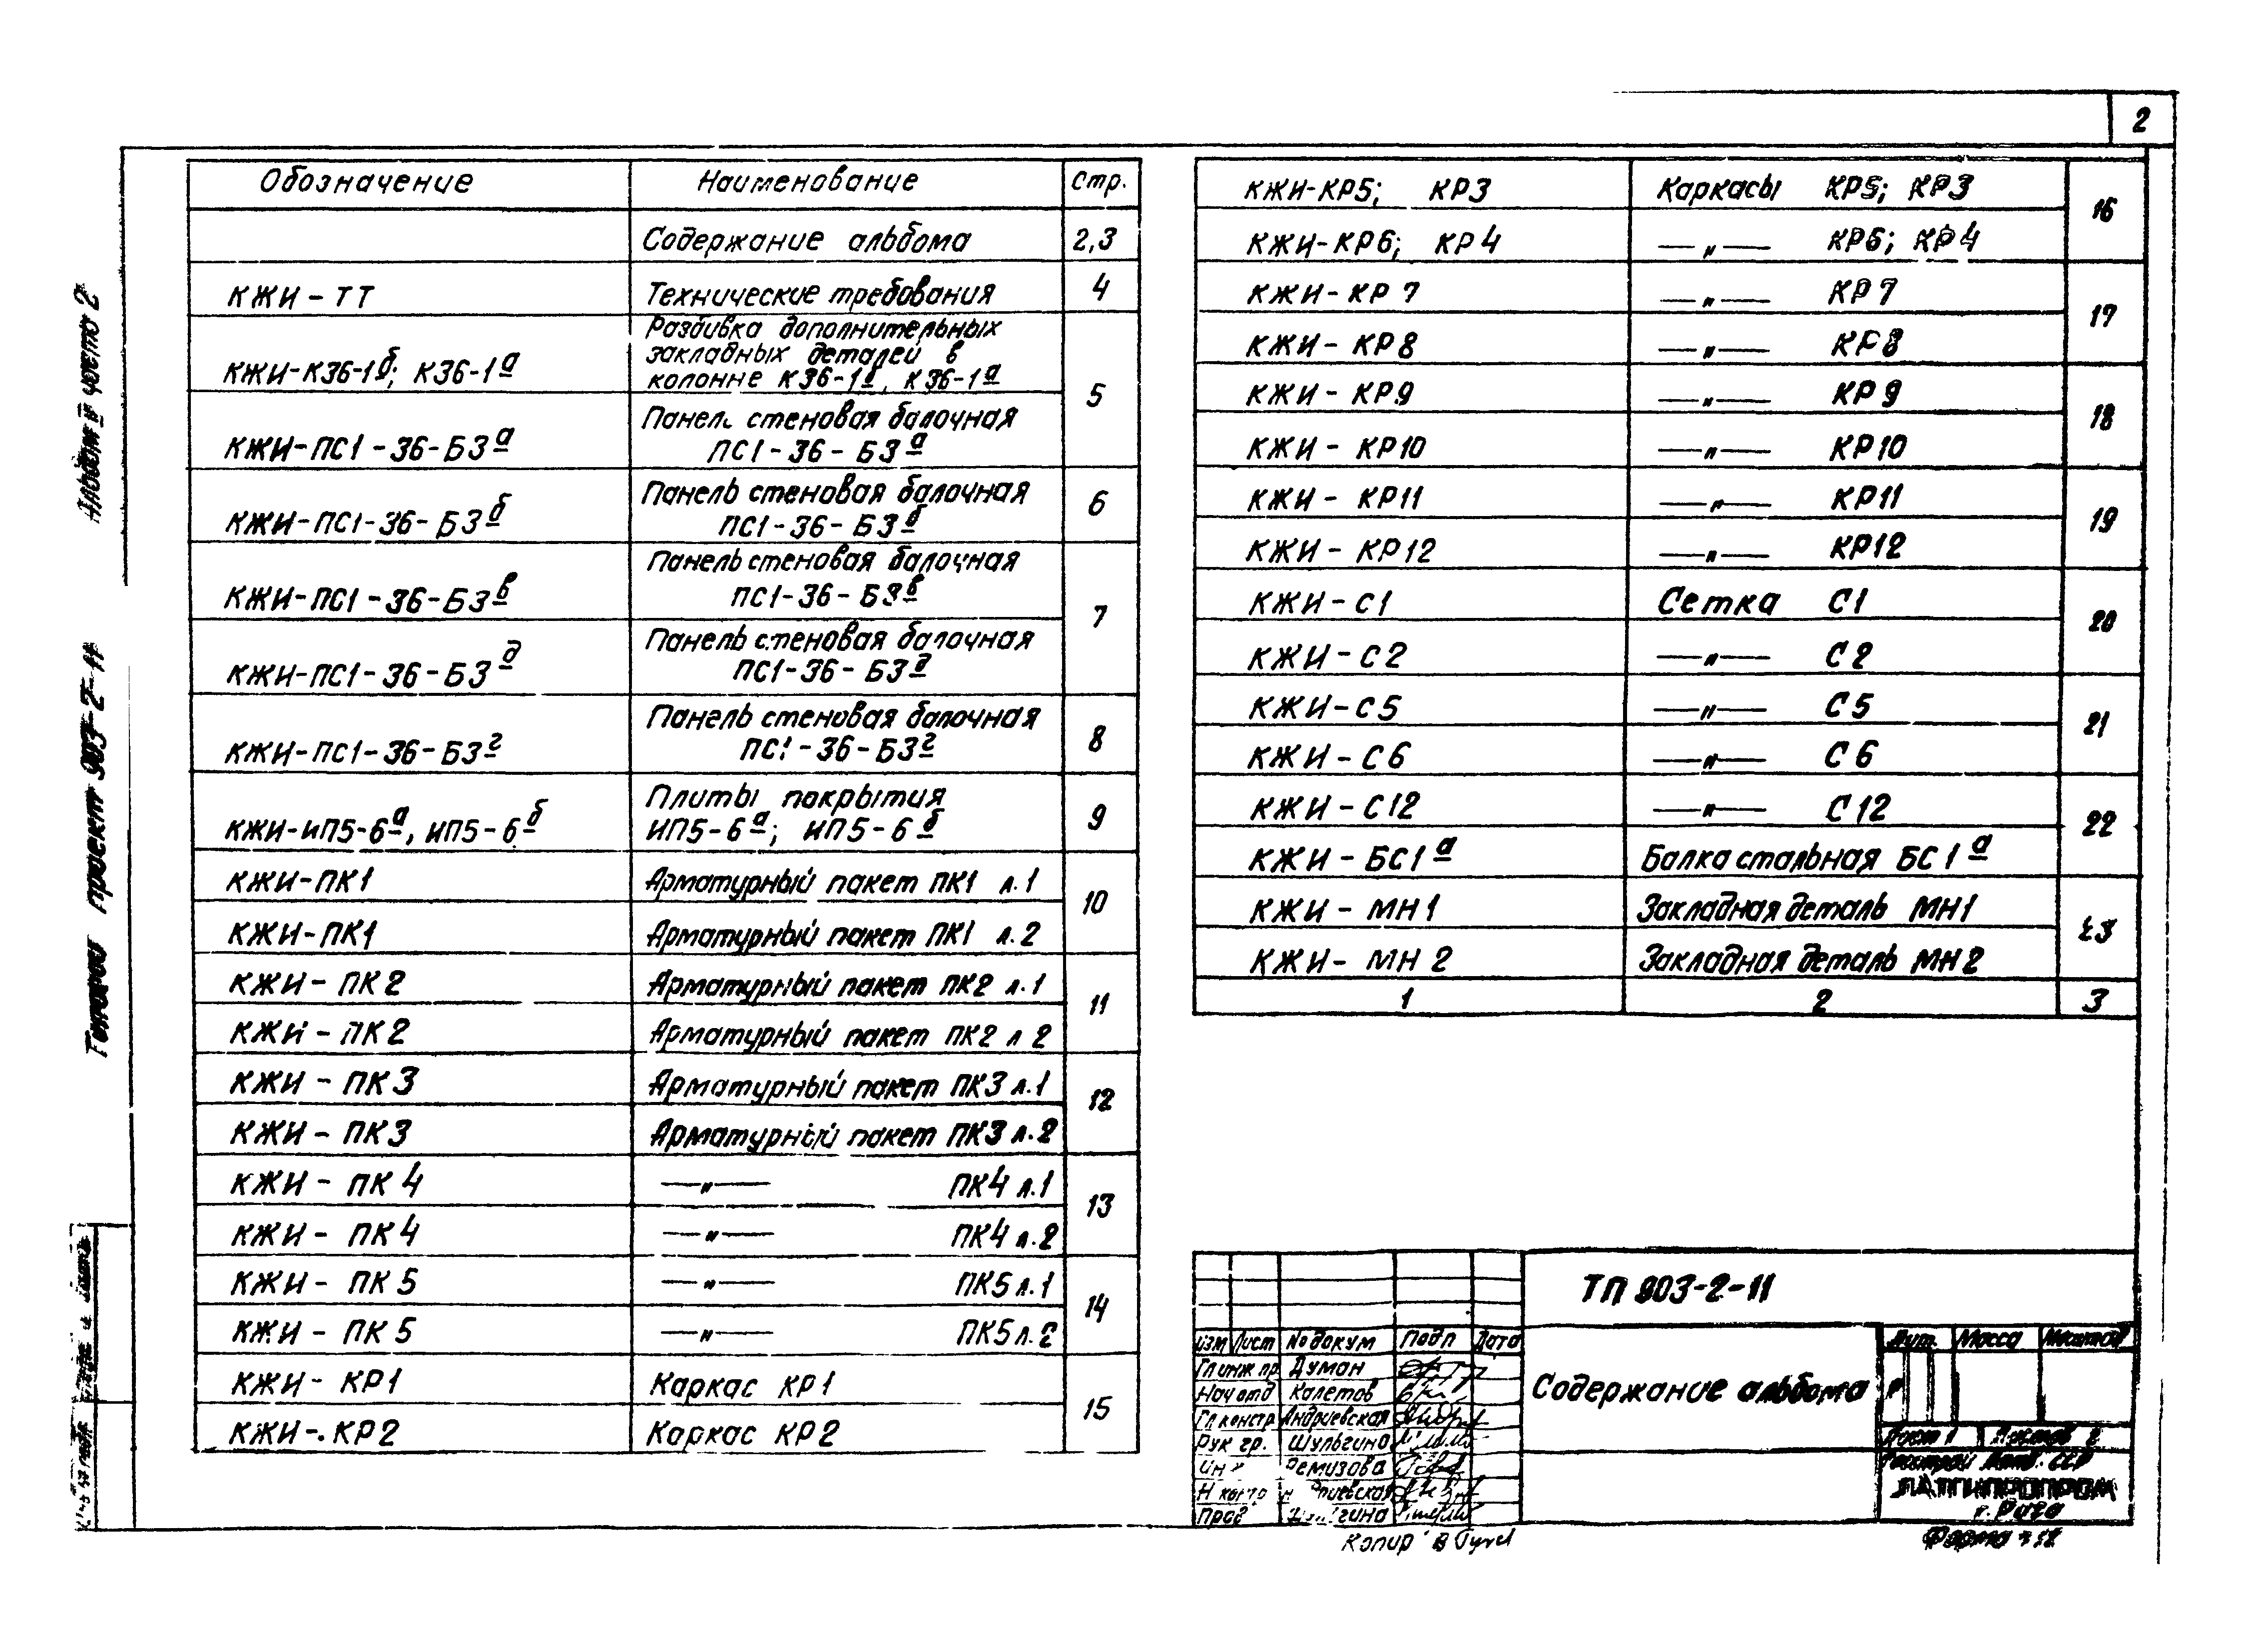 2
Обозначение Наименование Стр.
Содержание альбома 2,3
КЖИ-ТТ Технические требования 4
КЖИ-К36-1б; К36-1а Разбивка дополнительных
закладных деталей в
колонне К36-1б, К36-1а 5
КЖИ-ПС1-36-Б3а Панель стеновая балочная
ПС1-36-Б3а
КЖИ-ПС1-36-Б3б Панель стеновая балочная 6
ПС1-36-Б3б
КЖИ-ПС1-36-Б3в Панель стеновая балочная
ПС1-36-Б3в 7
КЖИ-ПС1-36-Б3д Панель стеновая балочная
ПС1-36-Б3д
КЖИ-ПС1-36-Б3г Панель стеновая балочная 8
ПС1-36-Б3г
КЖИ-ИП5-6а, ИП5-6б Плиты покрытия 9
ИП5-6а; ИП5-6б
КЖИ-ПК1 Арматурный пакет ПК1 л.1 10
КЖИ-ПК1 Арматурный пакет ПК1 л.2
КЖИ-ПК2 Арматурный пакет ПК2 л.1 11
КЖИ-ПК2 Арматурный пакет ПК2 л 2
КЖИ-ПК3 Арматурный пакет ПК3 л.1 12
КЖИ-ПК3 Арматурный пакет ПК3 л.2
КЖИ-ПК4 —„— ПК4 л.1 13
КЖИ-ПК4 —„— ПК4 л.2
КЖИ-ПК5 —„— ПК5 л.1 14
КЖИ-ПК5 —„— ПК5 л.2
КЖИ-КР1 Каркас КР1 15
КЖИ-КР2 Каркас КР2
КЖИ-КР5; КР3 Каркасы КР5; КР3 16
КЖИ-КР6; КР4 —„— КР6; КР4
КЖИ-КР7 —„— КР7 17
КЖИ-КР8 —„— КР8
КЖИ-КР9 —„— КР9 18
КЖИ-КР10 —„— КР10
КЖИ-КР11 —„— КР11 19
КЖИ-КР12 —„— КР12
КЖИ-С1 Сетка С1 20
КЖИ-С2 —„— С2
КЖИ-С5 —„— С5 21
КЖИ-С6 —„— С6
КЖИ-С12 —„— С12 22
КЖИ-БС1а Балка стальная БС1а
КЖИ-МН1 Закладная деталь МН1 23
КЖИ-МН2 Закладная деталь МН2
1 2 3
Альбом IV часть 2
Типовой проект 903-2-11
ТП 903-2-11
Изм Лист № докум Подп Дата
Гл инж пр. Думан
Нач отд Калетов
Гл констр Андриевская
Рук гр. Шульгина
Инж Ремизова
Н контр
Пров
Содержание альбома
Лит. Масса Масштаб
Р
Лист 1 Листов 2
Госстрой Латв. ССР
ЛАТГИПРОПРОМ
г. Рига
Копир
Форма 12